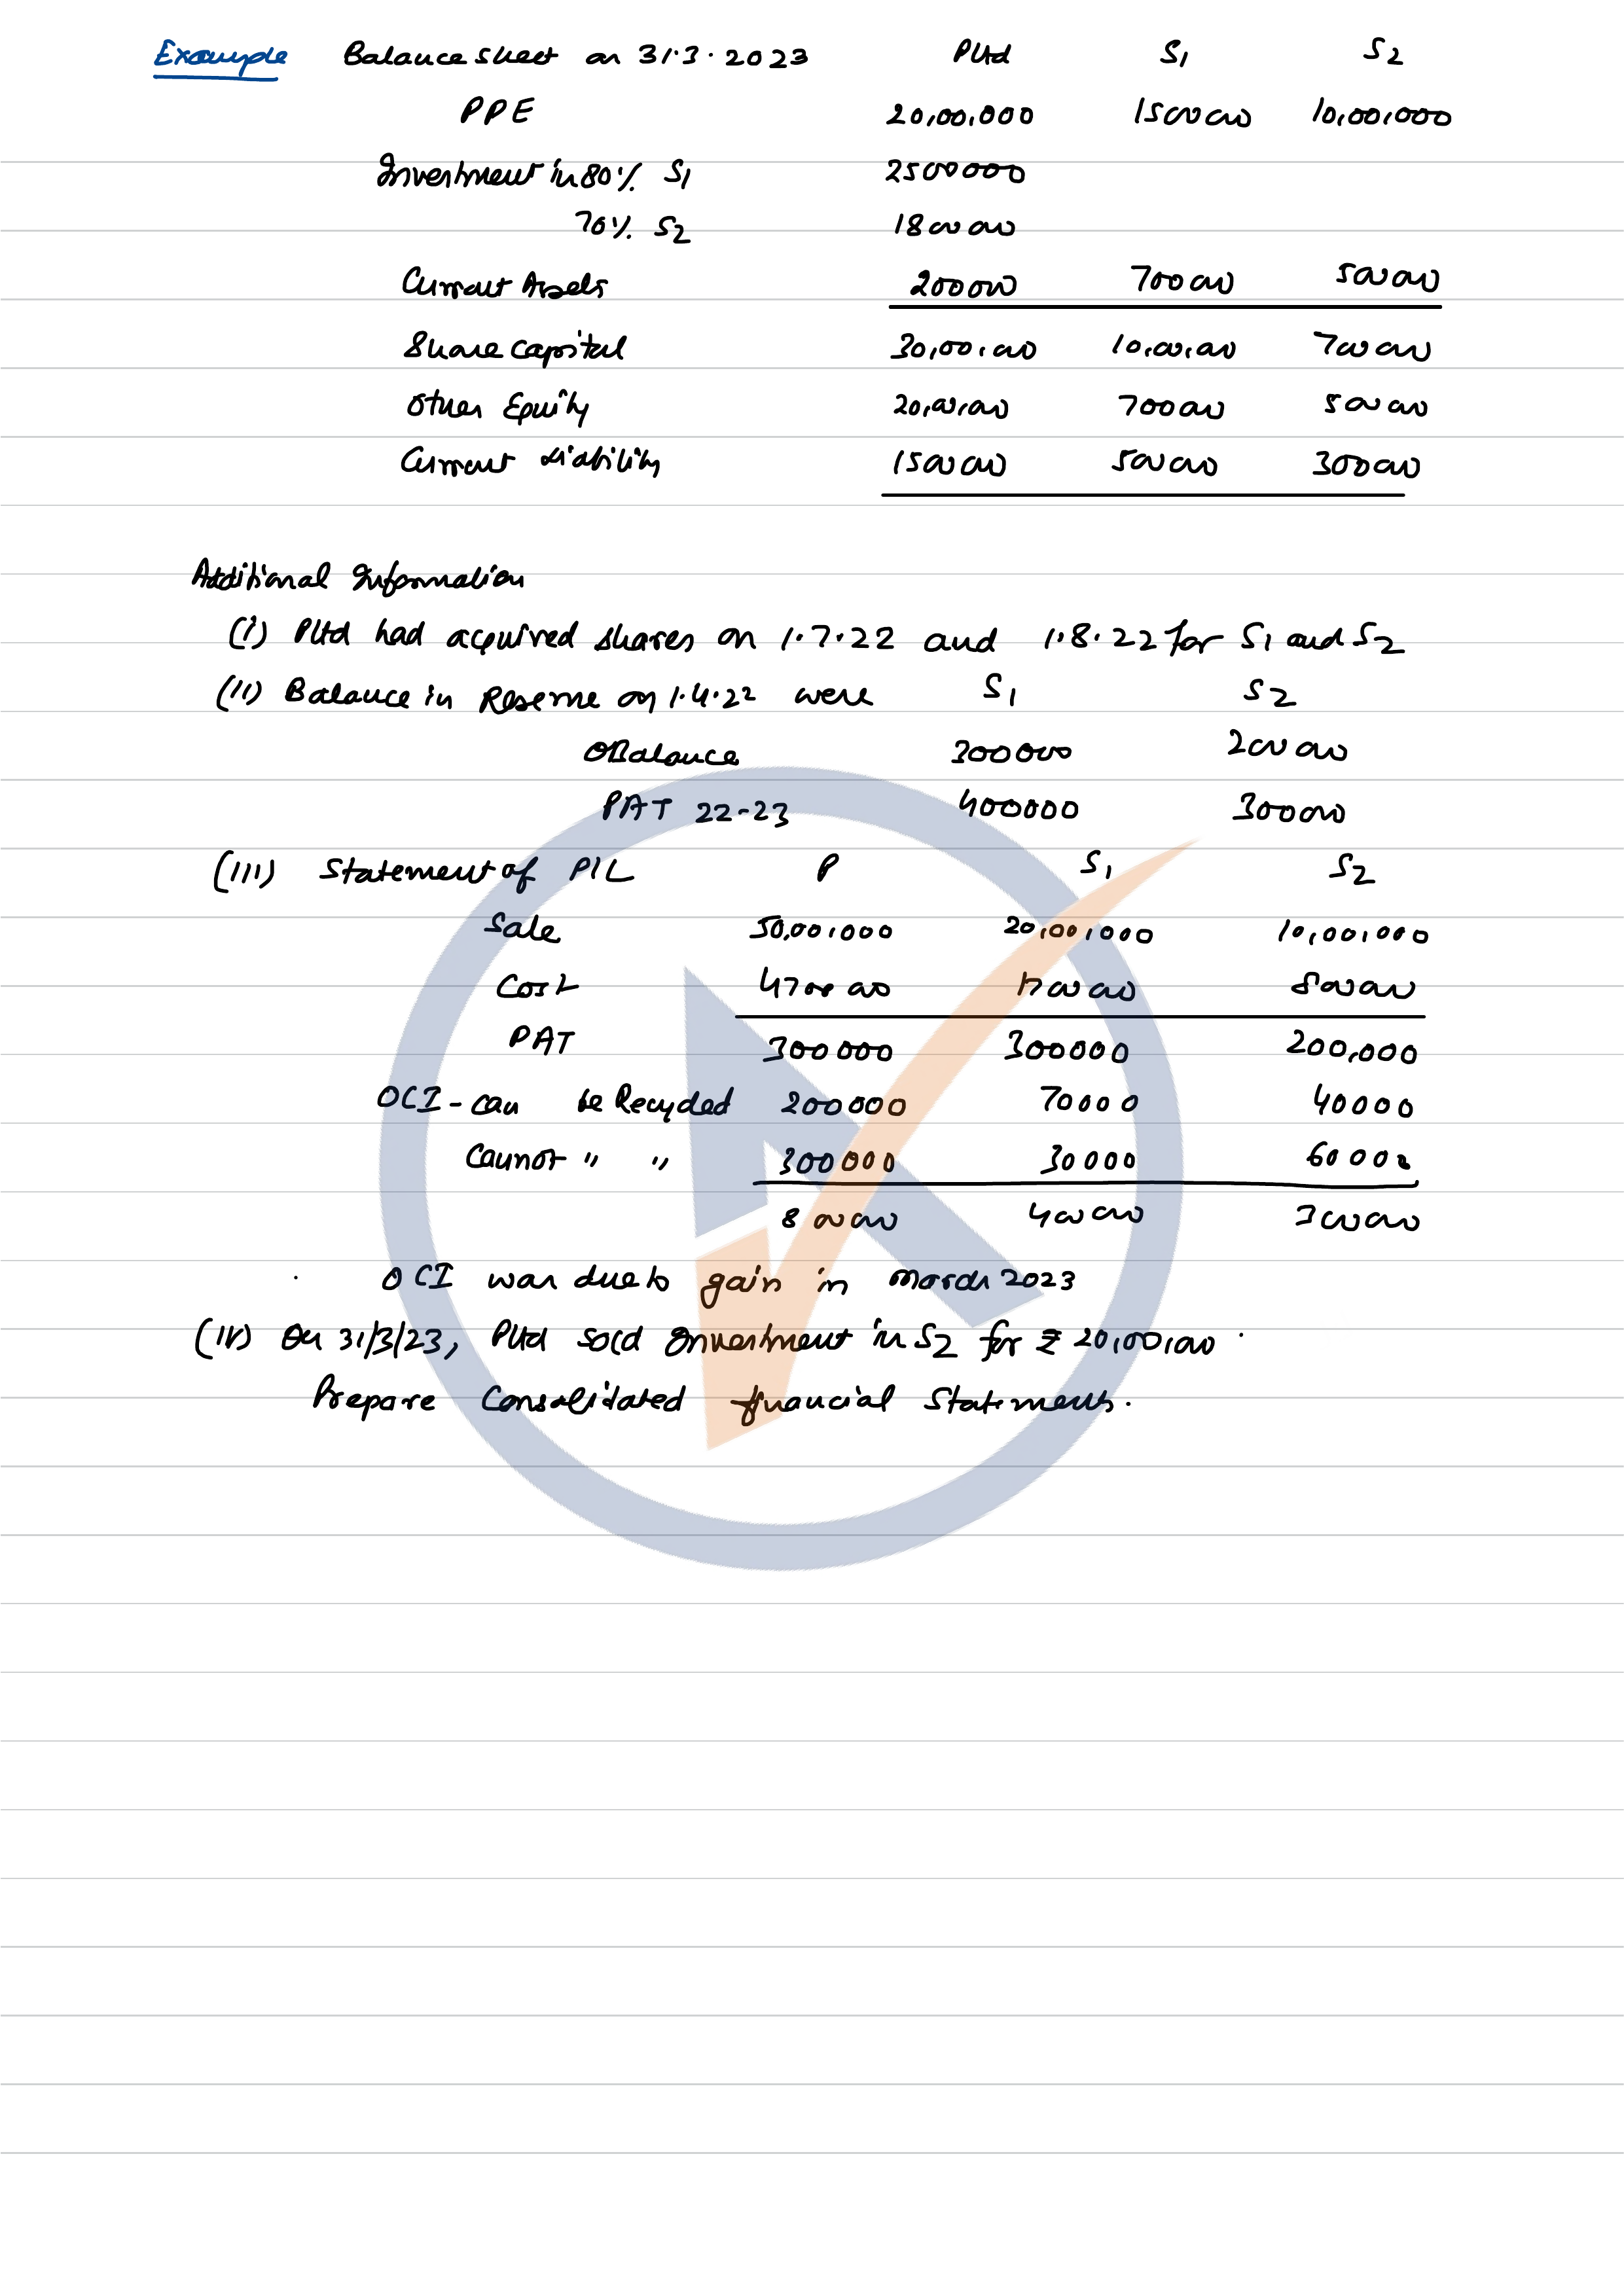 Example Balance sheet on 31.3.2023 P Ltd S1 S2
PPE 20,00,000 1500000 10,00,000
Investment in 80% S1 2500000
70% S2 1800000
Current Assets 200000 700000 500000
Share Capital 30,00,000 10,00,000 700000
Other Equity 20,00,000 700000 500000
Current Liability 1500000 500000 300000
Additional Information
(i) P Ltd had acquired shares on 1.7.22 and 1.8.22 for S1 and S2
(ii) Balance in Reserve on 1.4.22 were S1 S2
OBalance 300000 200000
PAT 22-23 400000 300000
(iii) Statement of P/L P S1 S2
Sale 50,00,000 20,00,000 10,00,000
Cost 4700000 1700000 800000
PAT 300000 300000 200,000
OCI - can be Recycled 200000 70000 40000
Cannot " " 300000 30000 60000
800000 400000 300000
OCI was due to gain in March 2023
(iv) On 31/3/23, P Ltd sold Investment in S2 for ₹ 20,00,000.
Prepare Consolidated financial Statements.